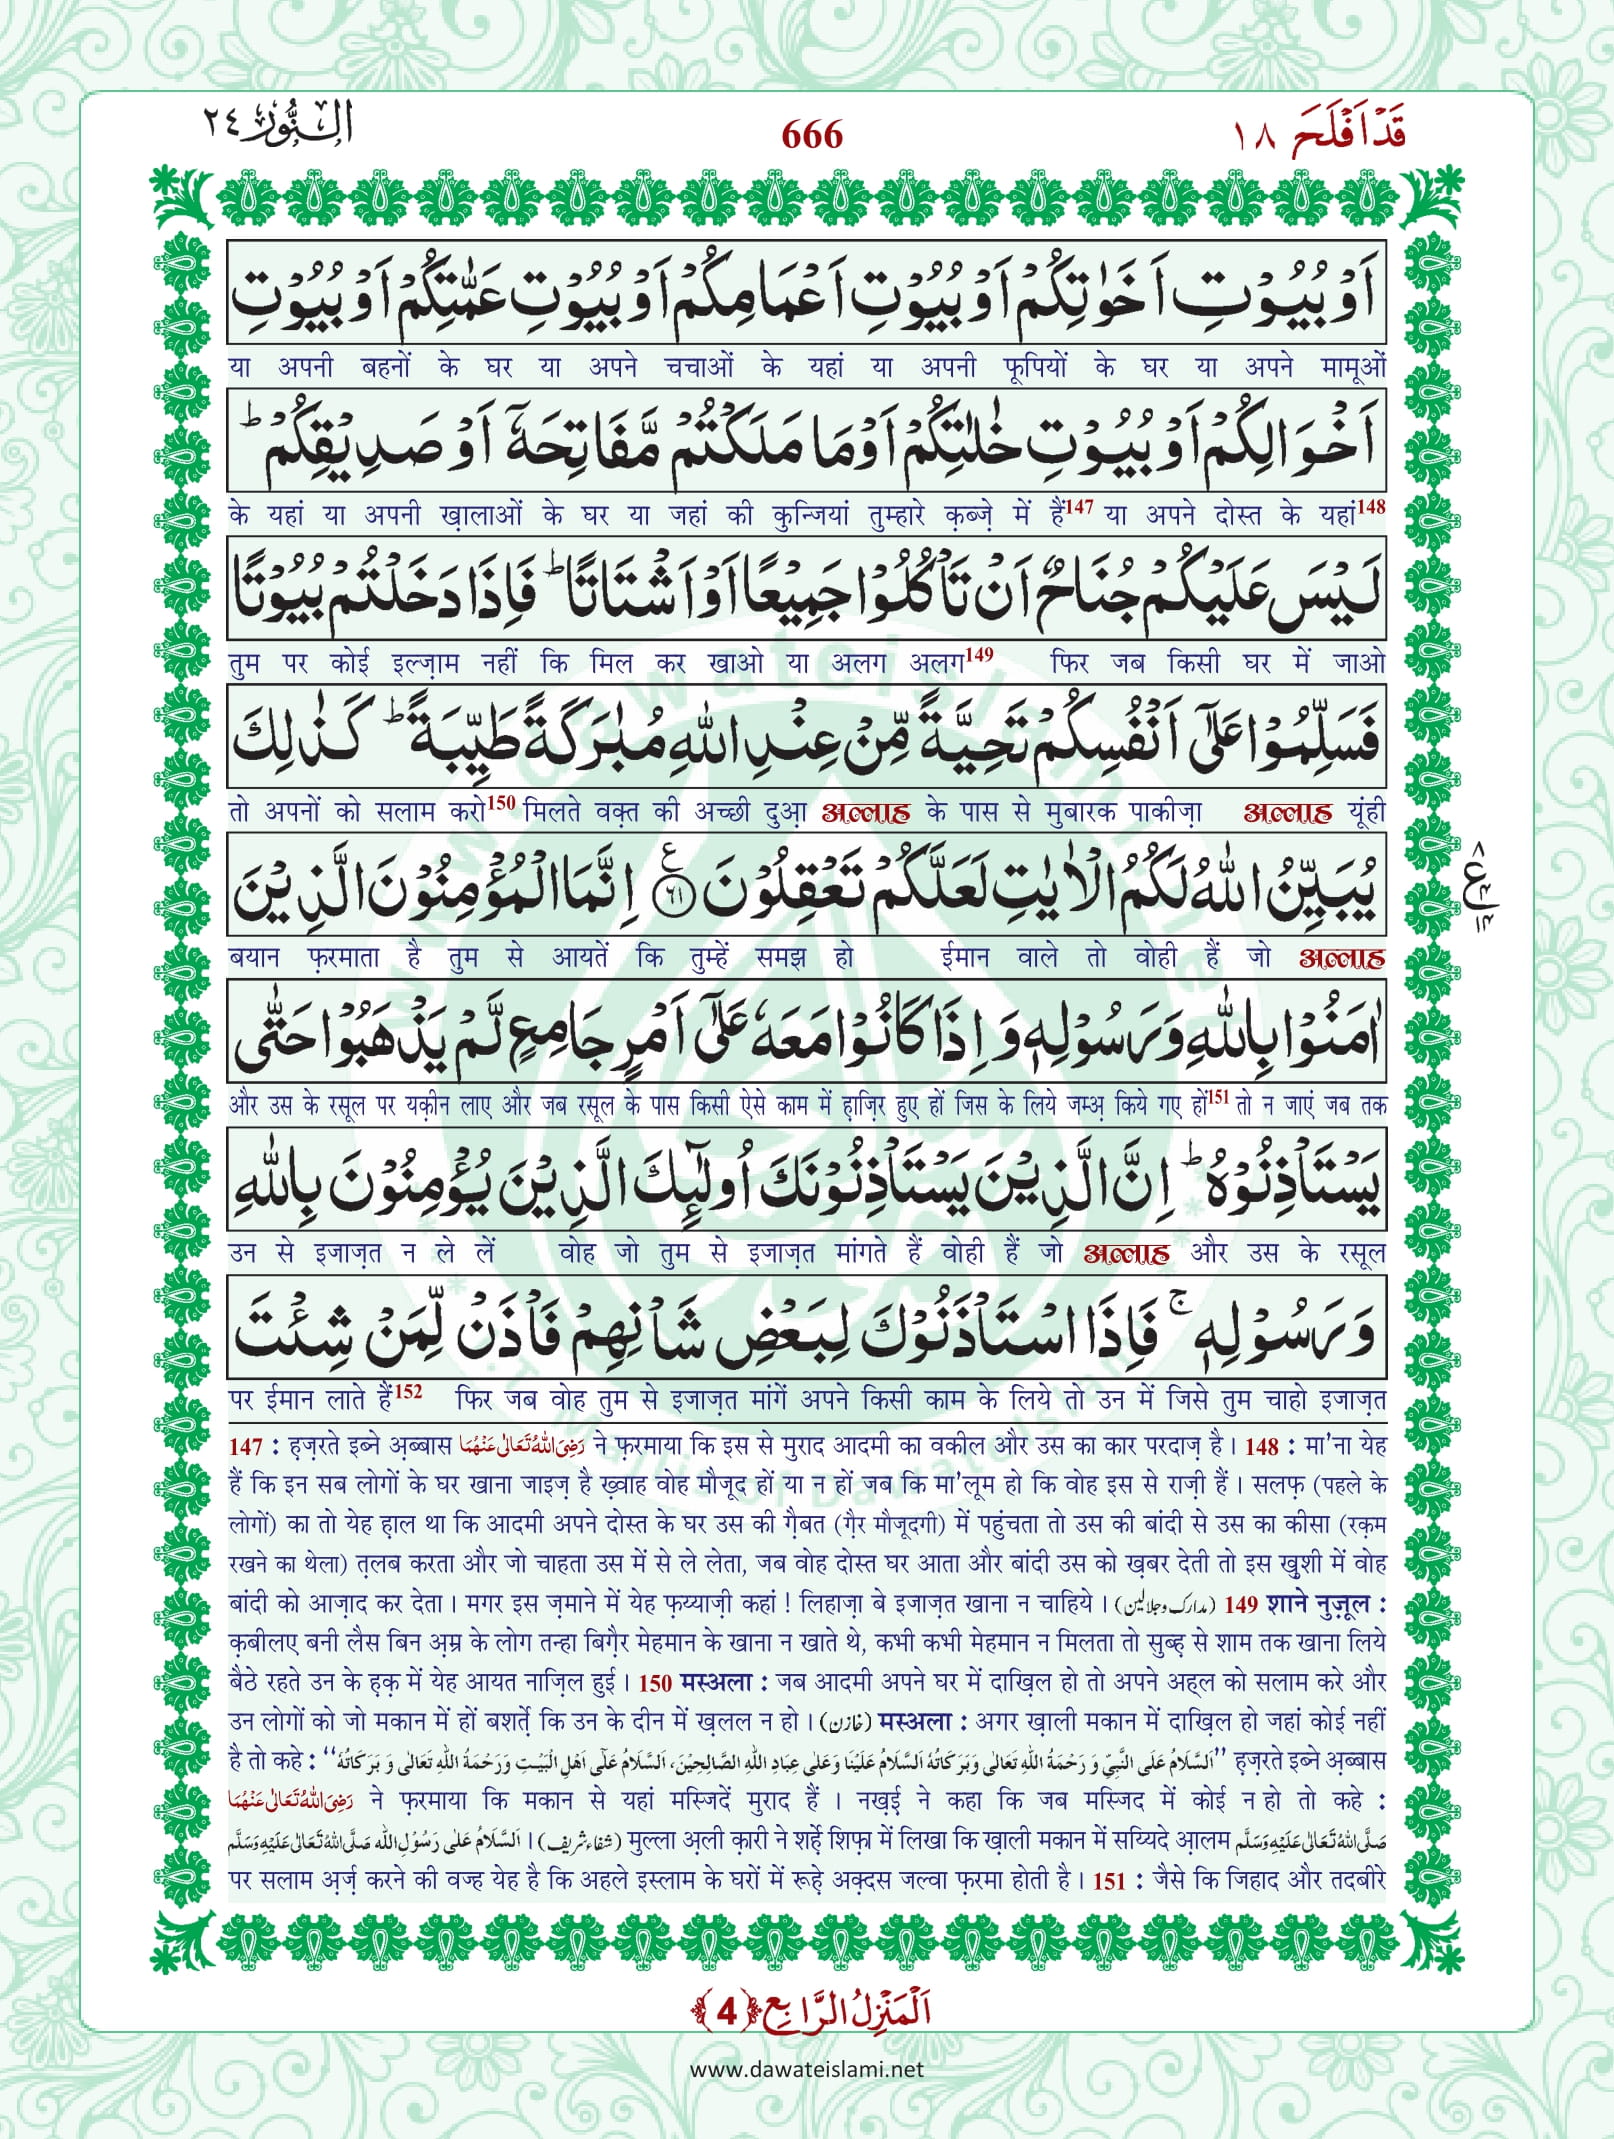 قَدْ اَفْلَحَ ١٨
666
اَلنُّوْر ٢٤
اَوْ بُيُوْتِ اَخَوٰتِكُمْ اَوْ بُيُوْتِ اَعْمَامِكُمْ اَوْ بُيُوْتِ عَمّٰتِكُمْ اَوْ بُيُوْتِ
या अपनी बहनों के घर या अपने चचाओं के यहां या अपनी फूपियों के घर या अपने मामूओं
اَخْوَالِكُمْ اَوْ بُيُوْتِ خٰلٰتِكُمْ اَوْ مَا مَلَكْتُمْ مَّفَاتِحَهٗۤ اَوْ صَدِيْقِكُمْ ؕ
के यहां या अपनी ख़ालाओं के घर या जहां की कुन्जियां तुम्हारे क़ब्ज़े में हैं147 या अपने दोस्त के यहां148
لَيْسَ عَلَيْكُمْ جُنَاحٌ اَنْ تَاْكُلُوْا جَمِيْعًا اَوْ اَشْتَاتًا ؕ فَاِذَا دَخَلْتُمْ بُيُوْتًا
तुम पर कोई इल्ज़ाम नहीं कि मिल कर खाओ या अलग अलग149 फिर जब किसी घर में जाओ
فَسَلِّمُوْا عَلٰۤى اَنْفُسِكُمْ تَحِيَّةً مِّنْ عِنْدِ اللّٰهِ مُبٰرَكَةً طَيِّبَةً ؕ كَذٰلِكَ
तो अपनों को सलाम करो150 मिलते वक़्त की अच्छी दुआ़ अल्लाह के पास से मुबारक पाकीज़ा अल्लाह यूंही
يُبَيِّنُ اللّٰهُ لَكُمُ الْاٰيٰتِ لَعَلَّكُمْ تَعْقِلُوْنَ ﴿٦١﴾ ع اِنَّمَا الْمُؤْمِنُوْنَ الَّذِيْنَ
बयान फ़रमाता है तुम से आयतें कि तुम्हें समझ हो ईमान वाले तो वोही हैं जो अल्लाह
اٰمَنُوْا بِاللّٰهِ وَ رَسُوْلِهٖ وَ اِذَا كَانُوْا مَعَهٗ عَلٰۤى اَمْرٍ جَامِعٍ لَّمْ يَذْهَبُوْا حَتّٰى
और उस के रसूल पर यक़ीन लाए और जब रसूल के पास किसी ऐसे काम में ह़ाज़िर हुए हों जिस के लिये जम्अ़ किये गए हों151 तो न जाएं जब तक
يَسْتَاْذِنُوْهُ ؕ اِنَّ الَّذِيْنَ يَسْتَاْذِنُوْنَكَ اُولٰٓئِكَ الَّذِيْنَ يُؤْمِنُوْنَ بِاللّٰهِ
उन से इजाज़त न ले लें वोह जो तुम से इजाज़त मांगते हैं वोही हैं जो अल्लाह और उस के रसूल
وَ رَسُوْلِهٖ ۚ فَاِذَا اسْتَاْذَنُوْكَ لِبَعْضِ شَاْنِهِمْ فَاْذَنْ لِّمَنْ شِئْتَ
पर ईमान लाते हैं152 फिर जब वोह तुम से इजाज़त मांगें अपने किसी काम के लिये तो उन में जिसे तुम चाहो इजाज़त
147 : ह़ज़रते इब्ने अ़ब्बास رَضِیَ اللّٰهُ تَعَالٰی عَنْهُمَا ने फ़रमाया कि इस से मुराद आदमी का वकील और उस का कार परदाज़ है। 148 : मा'ना येह
हैं कि इन सब लोगों के घर खाना जाइज़ है ख़्वाह वोह मौजूद हों या न हों जब कि मा'लूम हो कि वोह इस से राज़ी हैं। सलफ़ (पहले के
लोगों) का तो येह ह़ाल था कि आदमी अपने दोस्त के घर उस की ग़ैबत (ग़ैर मौजूदगी) में पहुंचता तो उस की बांदी से उस का कीसा (रक़म
रखने का थेला) त़लब करता और जो चाहता उस में से ले लेता, जब वोह दोस्त घर आता और बांदी उस को ख़बर देती तो इस खुशी में वोह
बांदी को आज़ाद कर देता। मगर इस ज़माने में येह फ़य्याज़ी कहां ! लिहाज़ा बे इजाज़त खाना न चाहिये। (مدارك وجلالين) 149 शाने नुज़ूल :
क़बीलए बनी लैस बिन अ़म्र के लोग तन्हा बिग़ैर मेहमान के खाना न खाते थे, कभी कभी मेहमान न मिलता तो सुब्ह़ से शाम तक खाना लिये
बैठे रहते उन के ह़क़ में येह आयत नाज़िल हुई। 150 मस्अला : जब आदमी अपने घर में दाख़िल हो तो अपने अह्ल को सलाम करे और
उन लोगों को जो मकान में हों बशर्ते़ कि उन के दीन में ख़लल न हो। (خازن) मस्अला : अगर ख़ाली मकान में दाख़िल हो जहां कोई नहीं
है तो कहे : "اَلسَّلَامُ عَلَى النَّبِيِّ وَ رَحْمَةُ اللّٰهِ تَعَالٰى وَبَرَكَاتُهٗ اَلسَّلَامُ عَلَيْنَا وَعَلٰى عِبَادِ اللّٰهِ الصَّالِحِيْنَ، اَلسَّلَامُ عَلٰى اَهْلِ الْبَيْتِ وَرَحْمَةُ اللّٰهِ تَعَالٰى وَ بَرَكَاتُهٗ" ह़ज़रते इब्ने अ़ब्बास
رَضِیَ اللّٰهُ تَعَالٰی عَنْهُمَا ने फ़रमाया कि मकान से यहां मस्जिदें मुराद हैं । नख़ई़ ने कहा कि जब मस्जिद में कोई न हो तो कहे :
اَلسَّلَامُ عَلٰى رَسُوْلِ اللّٰه صَلَّى اللّٰهُ تَعَالٰى عَلَيْهِ وَسَلَّم । (شفاء شريف) मुल्ला अ़ली क़ारी ने शर्ह़े शिफ़ा में लिखा कि ख़ाली मकान में सय्यिदे आ़लम صَلَّى اللّٰهُ تَعَالٰى عَلَيْهِ وَسَلَّم
पर सलाम अ़र्ज़ करने की वज्ह येह है कि अहले इस्लाम के घरों में रूह़े अक़्दस जल्वा फ़रमा होती है। 151 : जैसे कि जिहाद और तदबीरे
اَلْمَنْزِلُ الرَّابِع ﴿4﴾
www.dawateislami.net